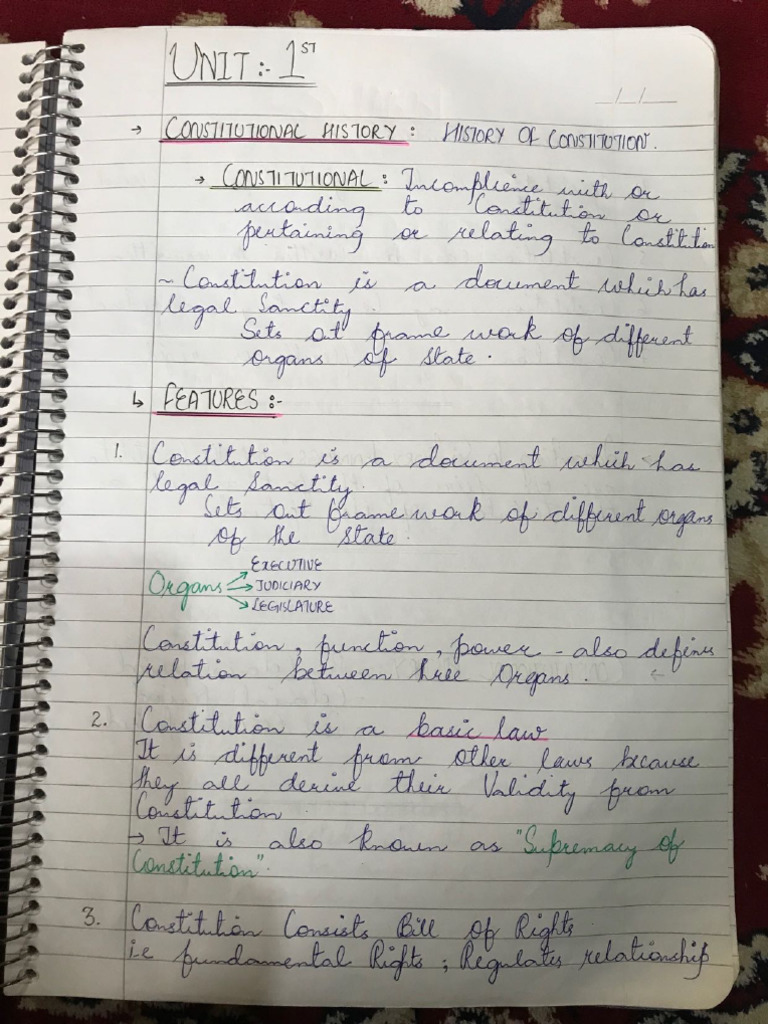 UNIT:- 1ST
_/_/_
→ CONSTITUTIONAL HISTORY : HISTORY OF CONSTITUTION.
→ CONSTITUTIONAL : Incomplience with or
according to Constitution or
pertaining or relating to Constitution
~ Constitution is a document which has
legal Sanctity.
Sets out frame work of different
organs of state.
↳ FEATURES :-
1. Constitution is a document which has
legal Sanctity.
Sets out frame work of different organs
of the state.
Organs → EXECUTIVE
→ JUDICIARY
→ LEGISLATURE
Constitution, function, power - also defines
relation between three Organs.
2. Constitution is a basic law
It is different from other laws because
they all derive their Validity from
Constitution
→ It is also known as "Supremacy of
Constitution".
3. Constitution Consists Bill of Rights
i.e fundamental Rights ; Regulates relationship